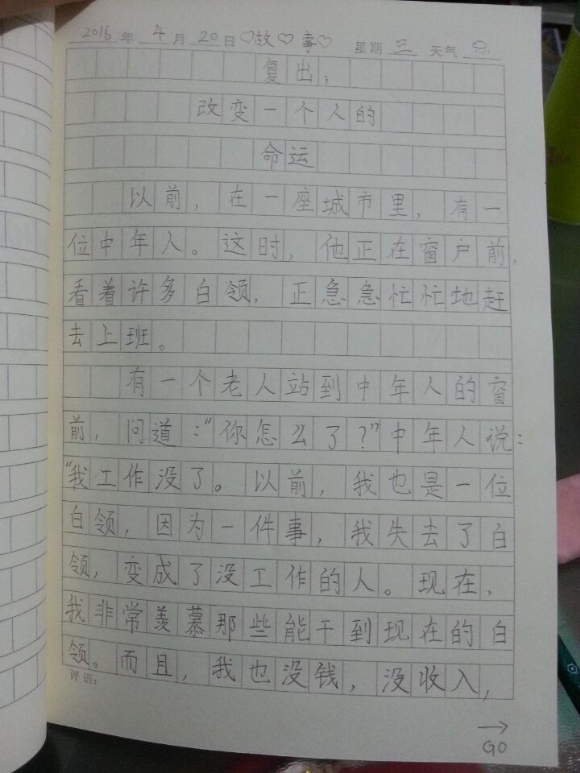 2016年4月20日♡故♡事♡ 星期三 天气
复出;
改变一个人的
命运
以前，在一座城市里，有一
位中年人。这时，他正在窗户前，
看着许多白领，正急急忙忙地赶
去上班。
有一个老人站到中年人的窗
前，问道："你怎么了？"中年人说：
"我工作没了。以前，我也是一位
白领，因为一件事，我失去了白
领，变成了没工作的人。现在，
我非常羡慕那些能干到现在的白
领。而且，我也没钱，没收入，
评语：
→
GO